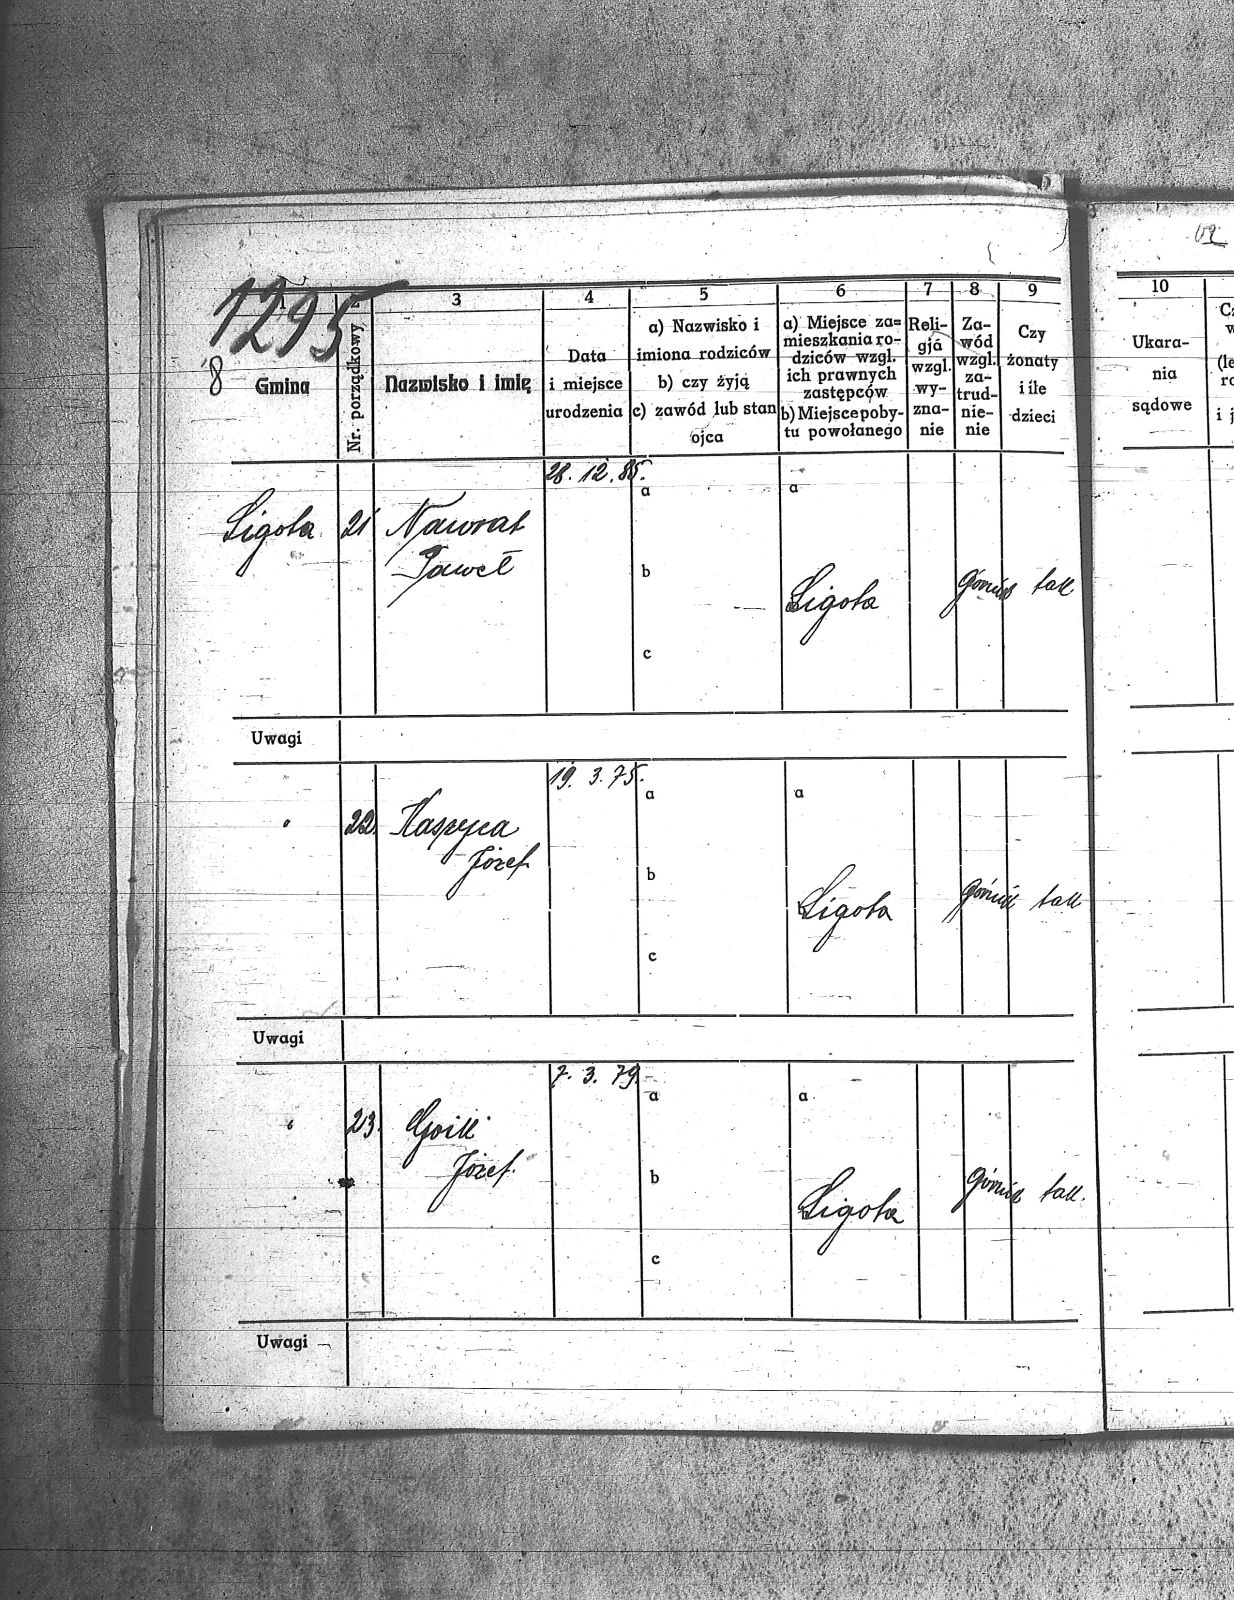 1295
8
1
Gmina
Nr. porządkowy
3
Nazwisko i imię
4
Data
i miejsce
urodzenia
5
a) Nazwisko i
imiona rodziców
b) czy żyją
c) zawód lub stan
ojca
6
a) Miejsce za=
mieszkania ro-
dziców wzgl.
ich prawnych
zastępców
b) Miejsce poby-
tu powołanego
7
Reli-
gja
wzgl.
wy-
zna-
nie
8
Za-
wód
wzgl.
za-
trud-
nie-
nie
9
Czy
żonaty
i ile
dzieci
10
Ukara-
nia
sądowe
Ligota 21 Nawrat
Paweł
28. 12. 85.
a
b
c
a
Ligota
górnik tak
Uwagi
" 22. Kaspyca
Józef
19. 3. 75.
a
b
c
a
Ligota
górnik tak
Uwagi
" 23. Goik
Józef.
7. 3. 79.
a
b
c
a
Ligota
górnik tak.
Uwagi